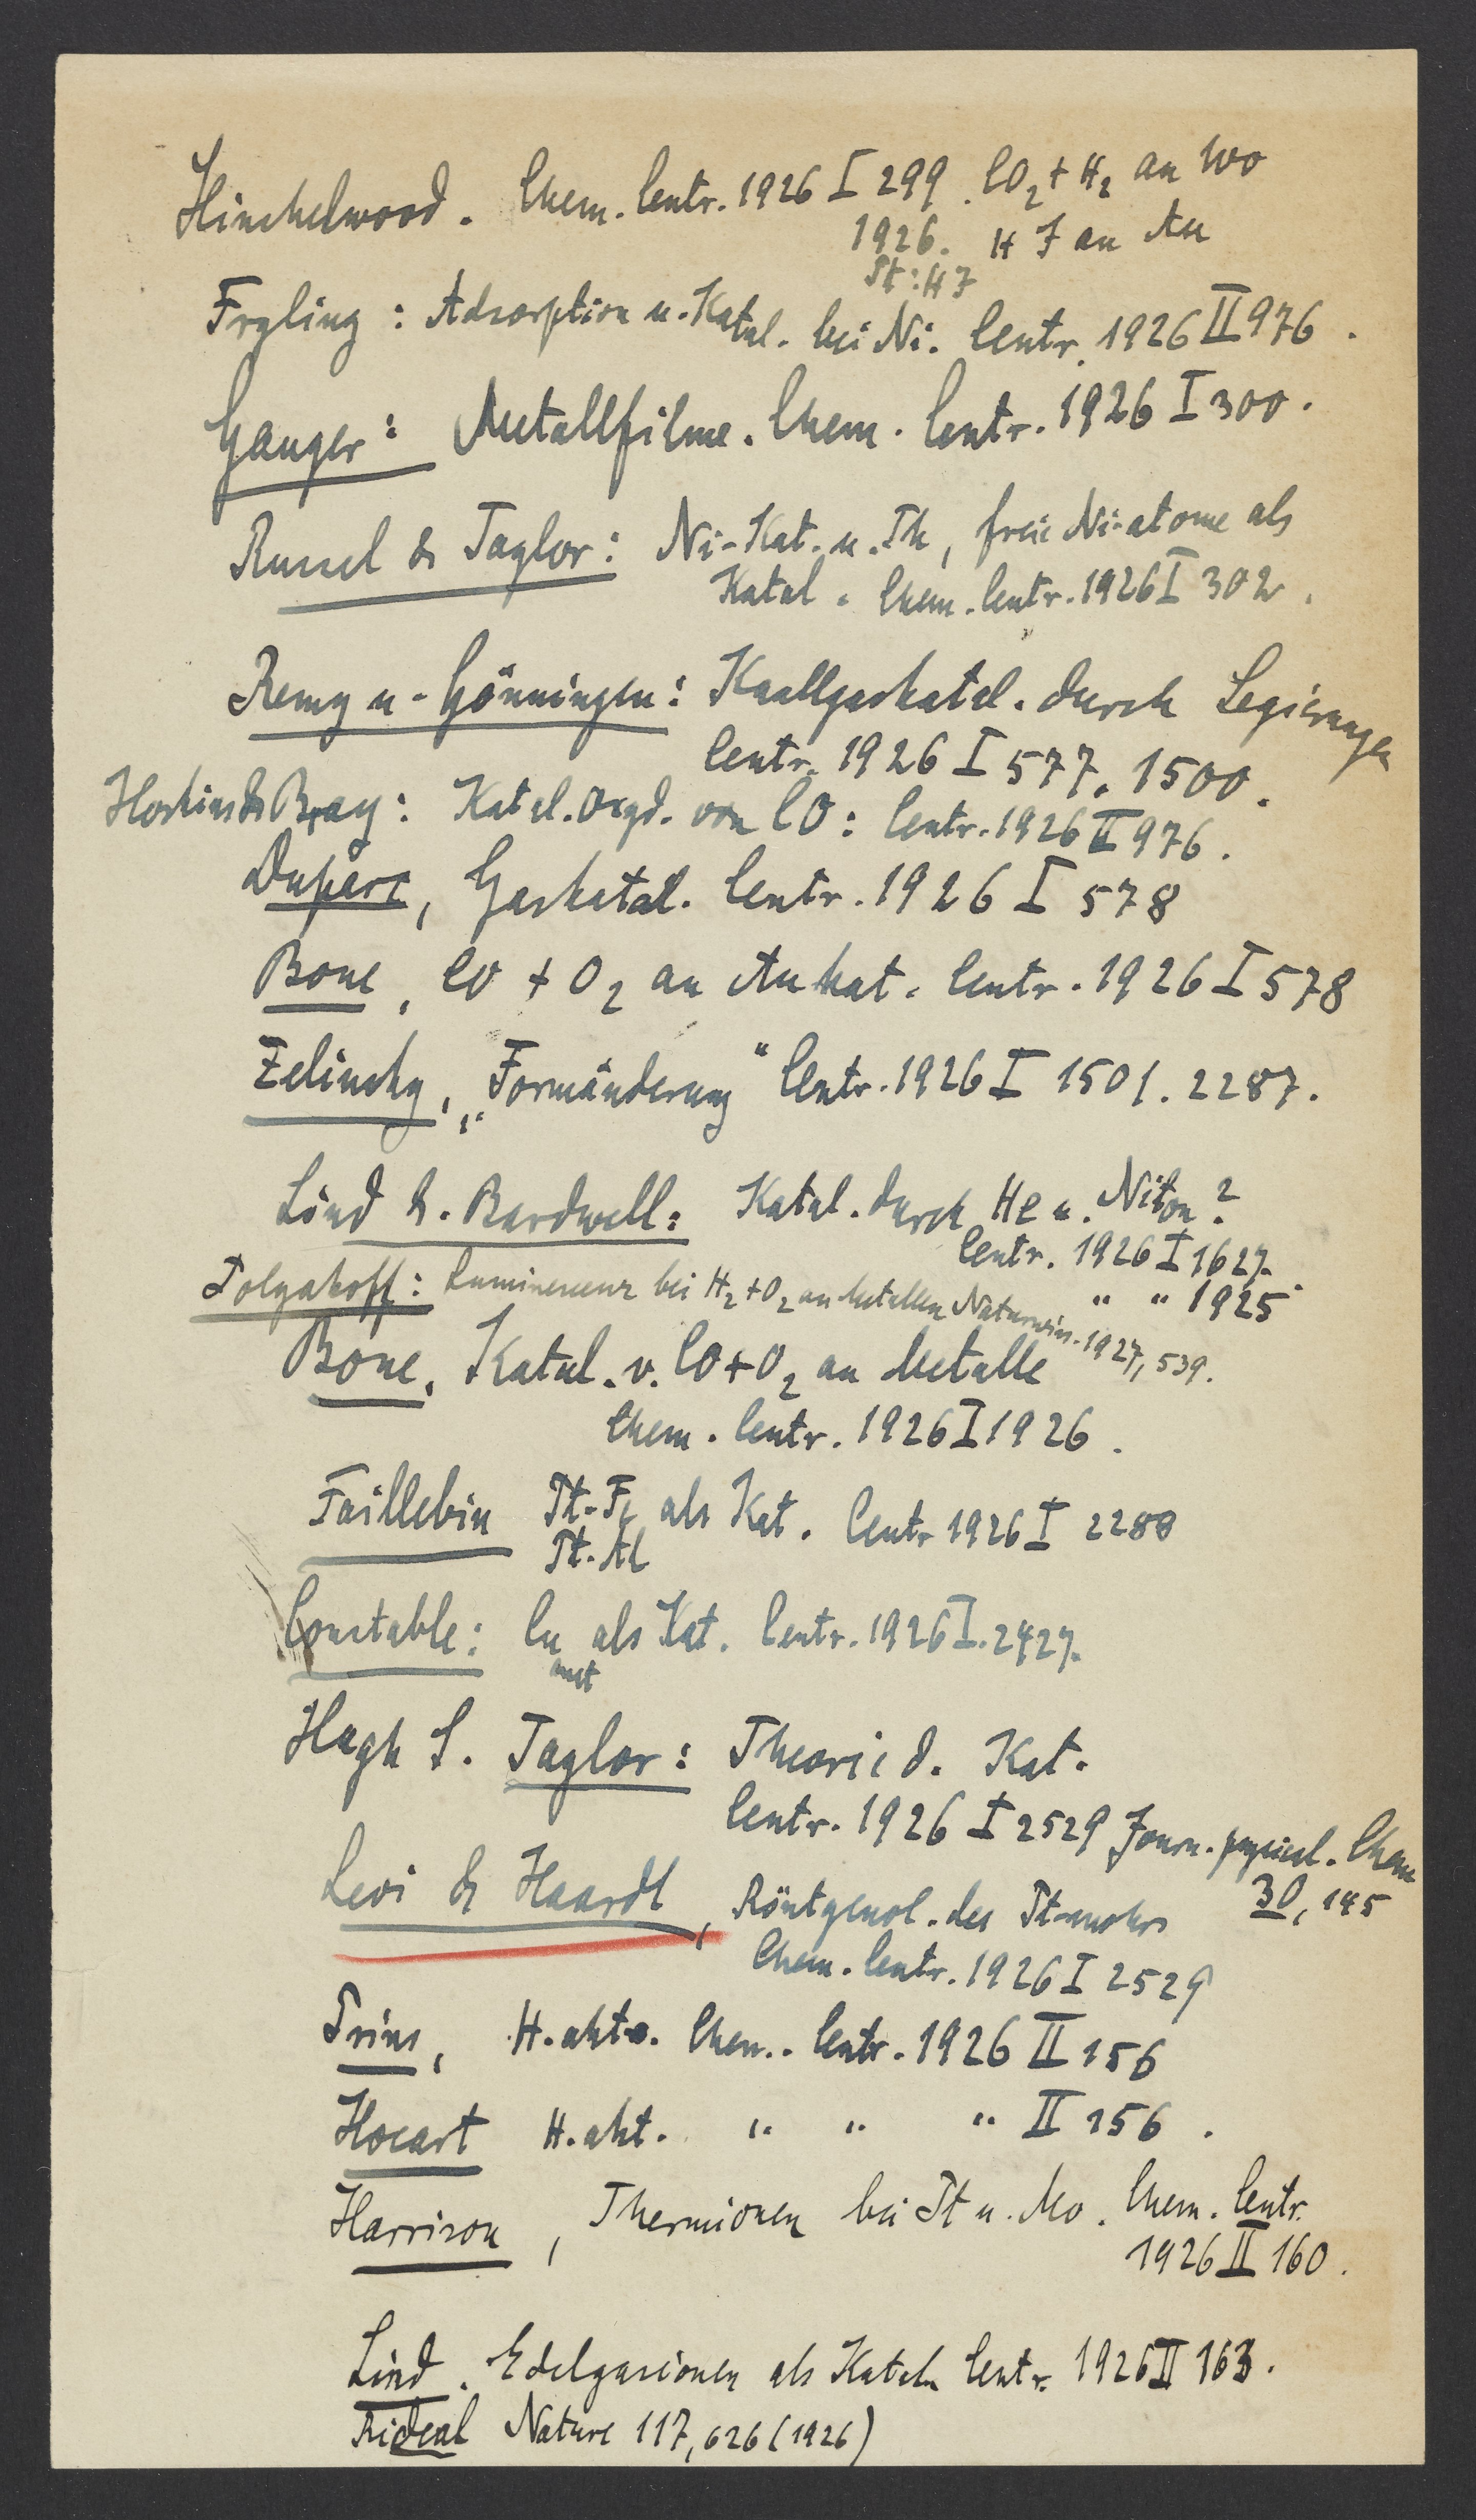 Hinshelwood. Chem. Centr. 1926 I 299. CO2 + H2 an Wo
1926. H J an Au
Pt: HJ
Fryling: Adsorption u. Katal. bei Ni. Centr. 1926 II 976.
Gauger: Metallfilme. Chem. Centr. 1926 I 300.
Russel & Taylor: Ni-Kat. u. Th, freie Ni-atome als
Katal. Chem. Centr. 1926 I 302.
Remy u. Gönningen: Knallgaskatal. durch Legierungen
Centr. 1926 I 577. 1500.
Hoskins & Bray: Katal. Oxyd. von CO: Centr. 1926 II 976.
Duparc, Gaskatal. Centr. 1926 I 578
Bone, CO + O2 an Au kat. Centr. 1926 I 578
Zelinsky, „Formänderung“ Centr. 1926 I 1501. 2287.
Lind & Bardwell: Katal. durch He u. Niton?
Centr. 1926 I 1627.
" " 1925
Polyakoff: Luminescenz bei H2 + O2 an Metallen Naturwiss. 1927, 539.
Bone, Katal. v. CO + O2 an Metalle
Chem. Centr. 1926 I 1926.
Faillebin Pt-Fe als Kat. Centr 1926 I 2280
Pt-Al
Constable: Cu als Kat. Centr. 1926 I. 2427.
Hugh S. Taylor: Theorie d. Kat.
Centr. 1926 I 2529 Journ. physical. Chem
30, 145
Levi & Haardt, Röntgenol. des Pt-mohrs
Chem. Centr. 1926 I 2529
Prins, H. akt. Chem. Centr. 1926 II 156
Hocart H. akt. " " " II 156.
Harrison, Thermionen bei Pt u. Mo. Chem. Centr.
1926 II 160.
Lind. Edelgasionen als Katal. Centr. 1926 II 163.
Rideal Nature 117, 626 (1926)